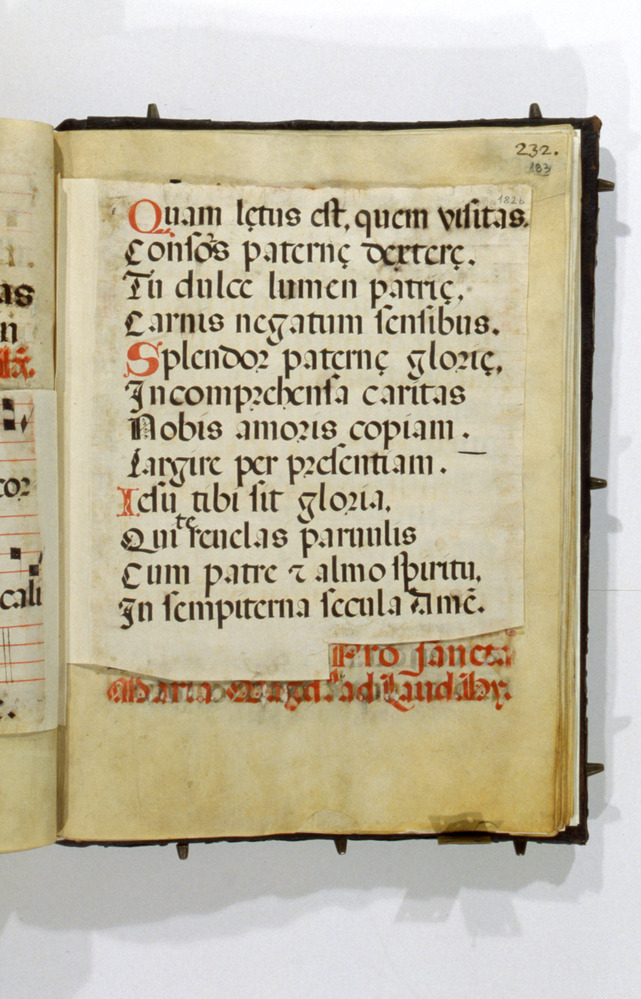 232.
183
182b
Quam lętus est, quem visitas.
Consōs paternę dexterę.
Tu dulce lumen patrię,
Carnis negatum sensibus.
Splendor paternę glorię,
Incomprehensa caritas
Nobis amoris copiam.
Largire per presentiam.
Iesu tibi sit gloria,
Qui te reuelas paruulis
Cum patre ⁊ almo spiritu,
In sempiterna secula Amē.
Pro sancta
Maria ad Laud. Hy.
as
n
cor
cali